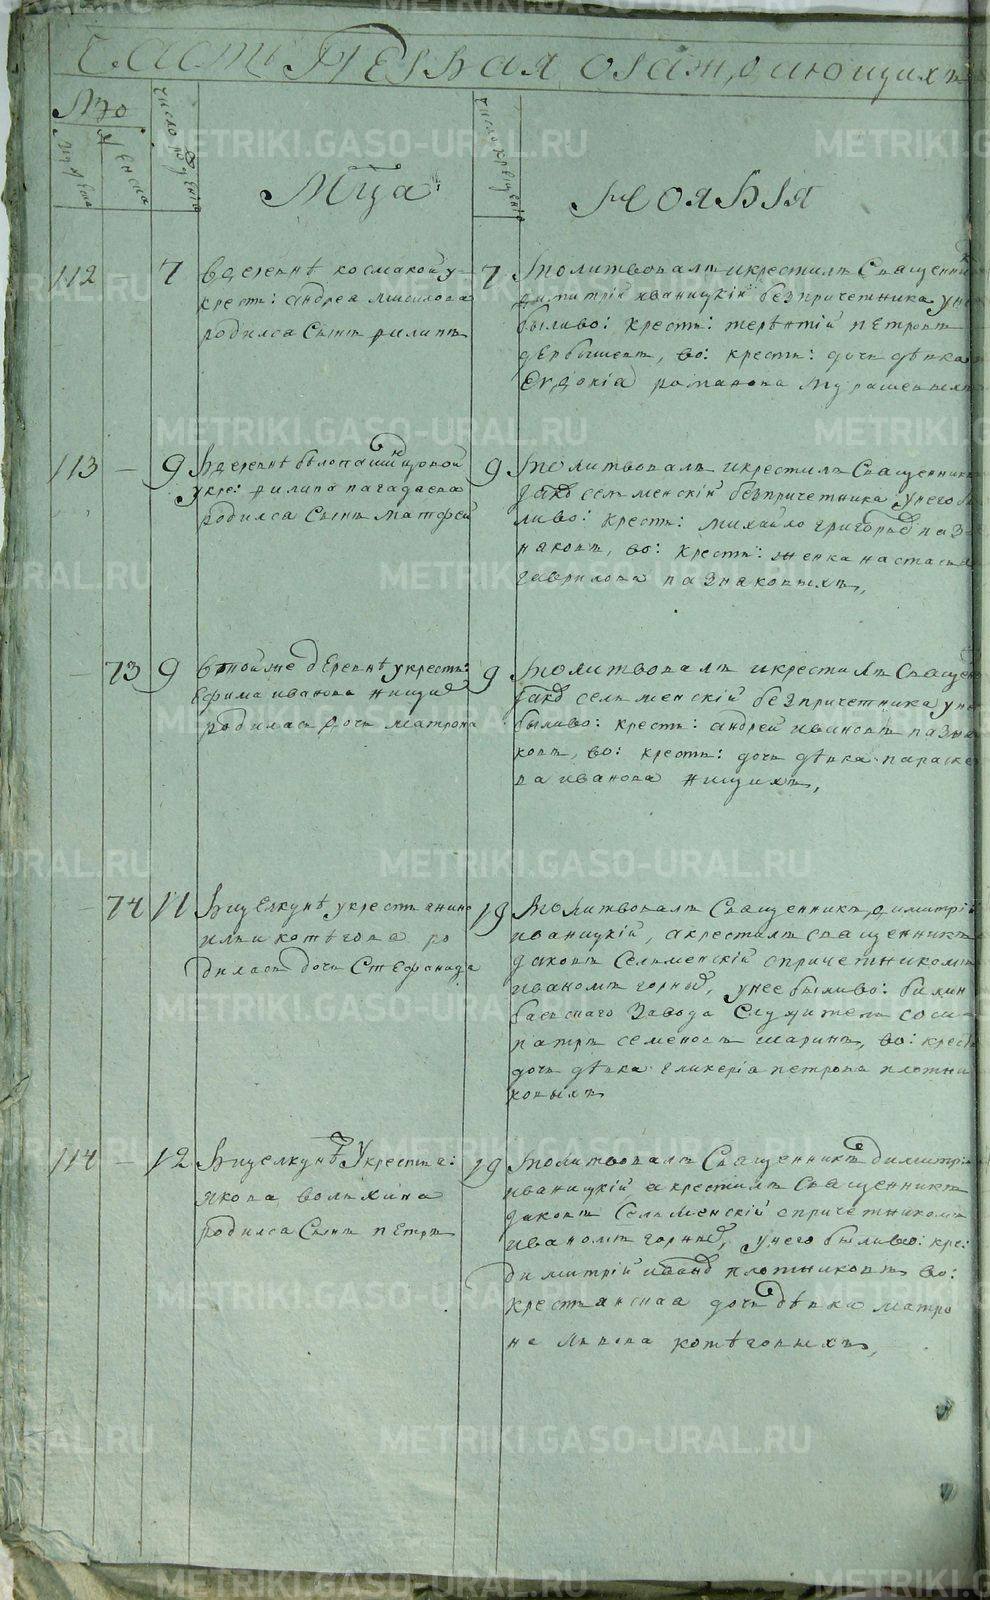 Часть Первая ораждающихъ
No
мужеска
женска
число рожденiя
Мца
число крещенiя
ноября
112
7
Вдеревнѣ космаковѣ у
крест: андрея
родился Сынъ филипъ
7
молитвовалъ икрестилъ Священникъ
димитрiй иваницкiй безпричетника унего
быливо: крест: терентiй петровъ
дербышевъ, во: крест: дочь дѣвка
Евдокiя романова
113
9
Вдеревнѣ
укре: филипа
родился Сынъ матфей
9
молитвовалъ икрестилъ Священникъ
Iаковъ селменскiй безпричетника унего бы
ливо: крест: михайло григорьевъ паз
наковъ, во: крест: женка настасья
гаврилова пазнаковыхъ,
73
9
втойже деревнѣ укрест:
Ефима иванова нищих
родилась дочь матрона
9
молитвовалъ икрестилъ Священ
Iаковъ селменскiй безпричетника уне
быливо: крест: андрей ивановъ пазна
ковъ, во: крест: дочь дѣвка параске
ва иванова нищихъ,
74
11
Вщелкунѣ укрестьянина
ильи котѣгова ро
дилась дочь Стефанида
19
молитвовалъ Священникъ димитрiй
иваницкiй, акрестилъ священникъ
Iаковъ Селменскiй спричетникомъ
иваномъ горныхъ, унее быливо: билим
баевскаго Завода Служитель соси
патръ семеновъ шаринъ, во: крест
дочь дѣвка гликерiя петрова плотни
ковыхъ
114
12
Вщелкунѣ Укрестья:
якова волыхина
родился Сынъ петръ
19
молитвовалъ Священникъ димитрiй
иваницкiй акрестилъ Священникъ
Iаковъ Селменскiй спричетникомъ
иваномъ горныхъ, унего быливо: кре:
димитрiй ивановъ плотниковъ, во:
крестьянская дочь дѣвка матро
на котѣговыхъ,
METRIKI.GASO-URAL.RU